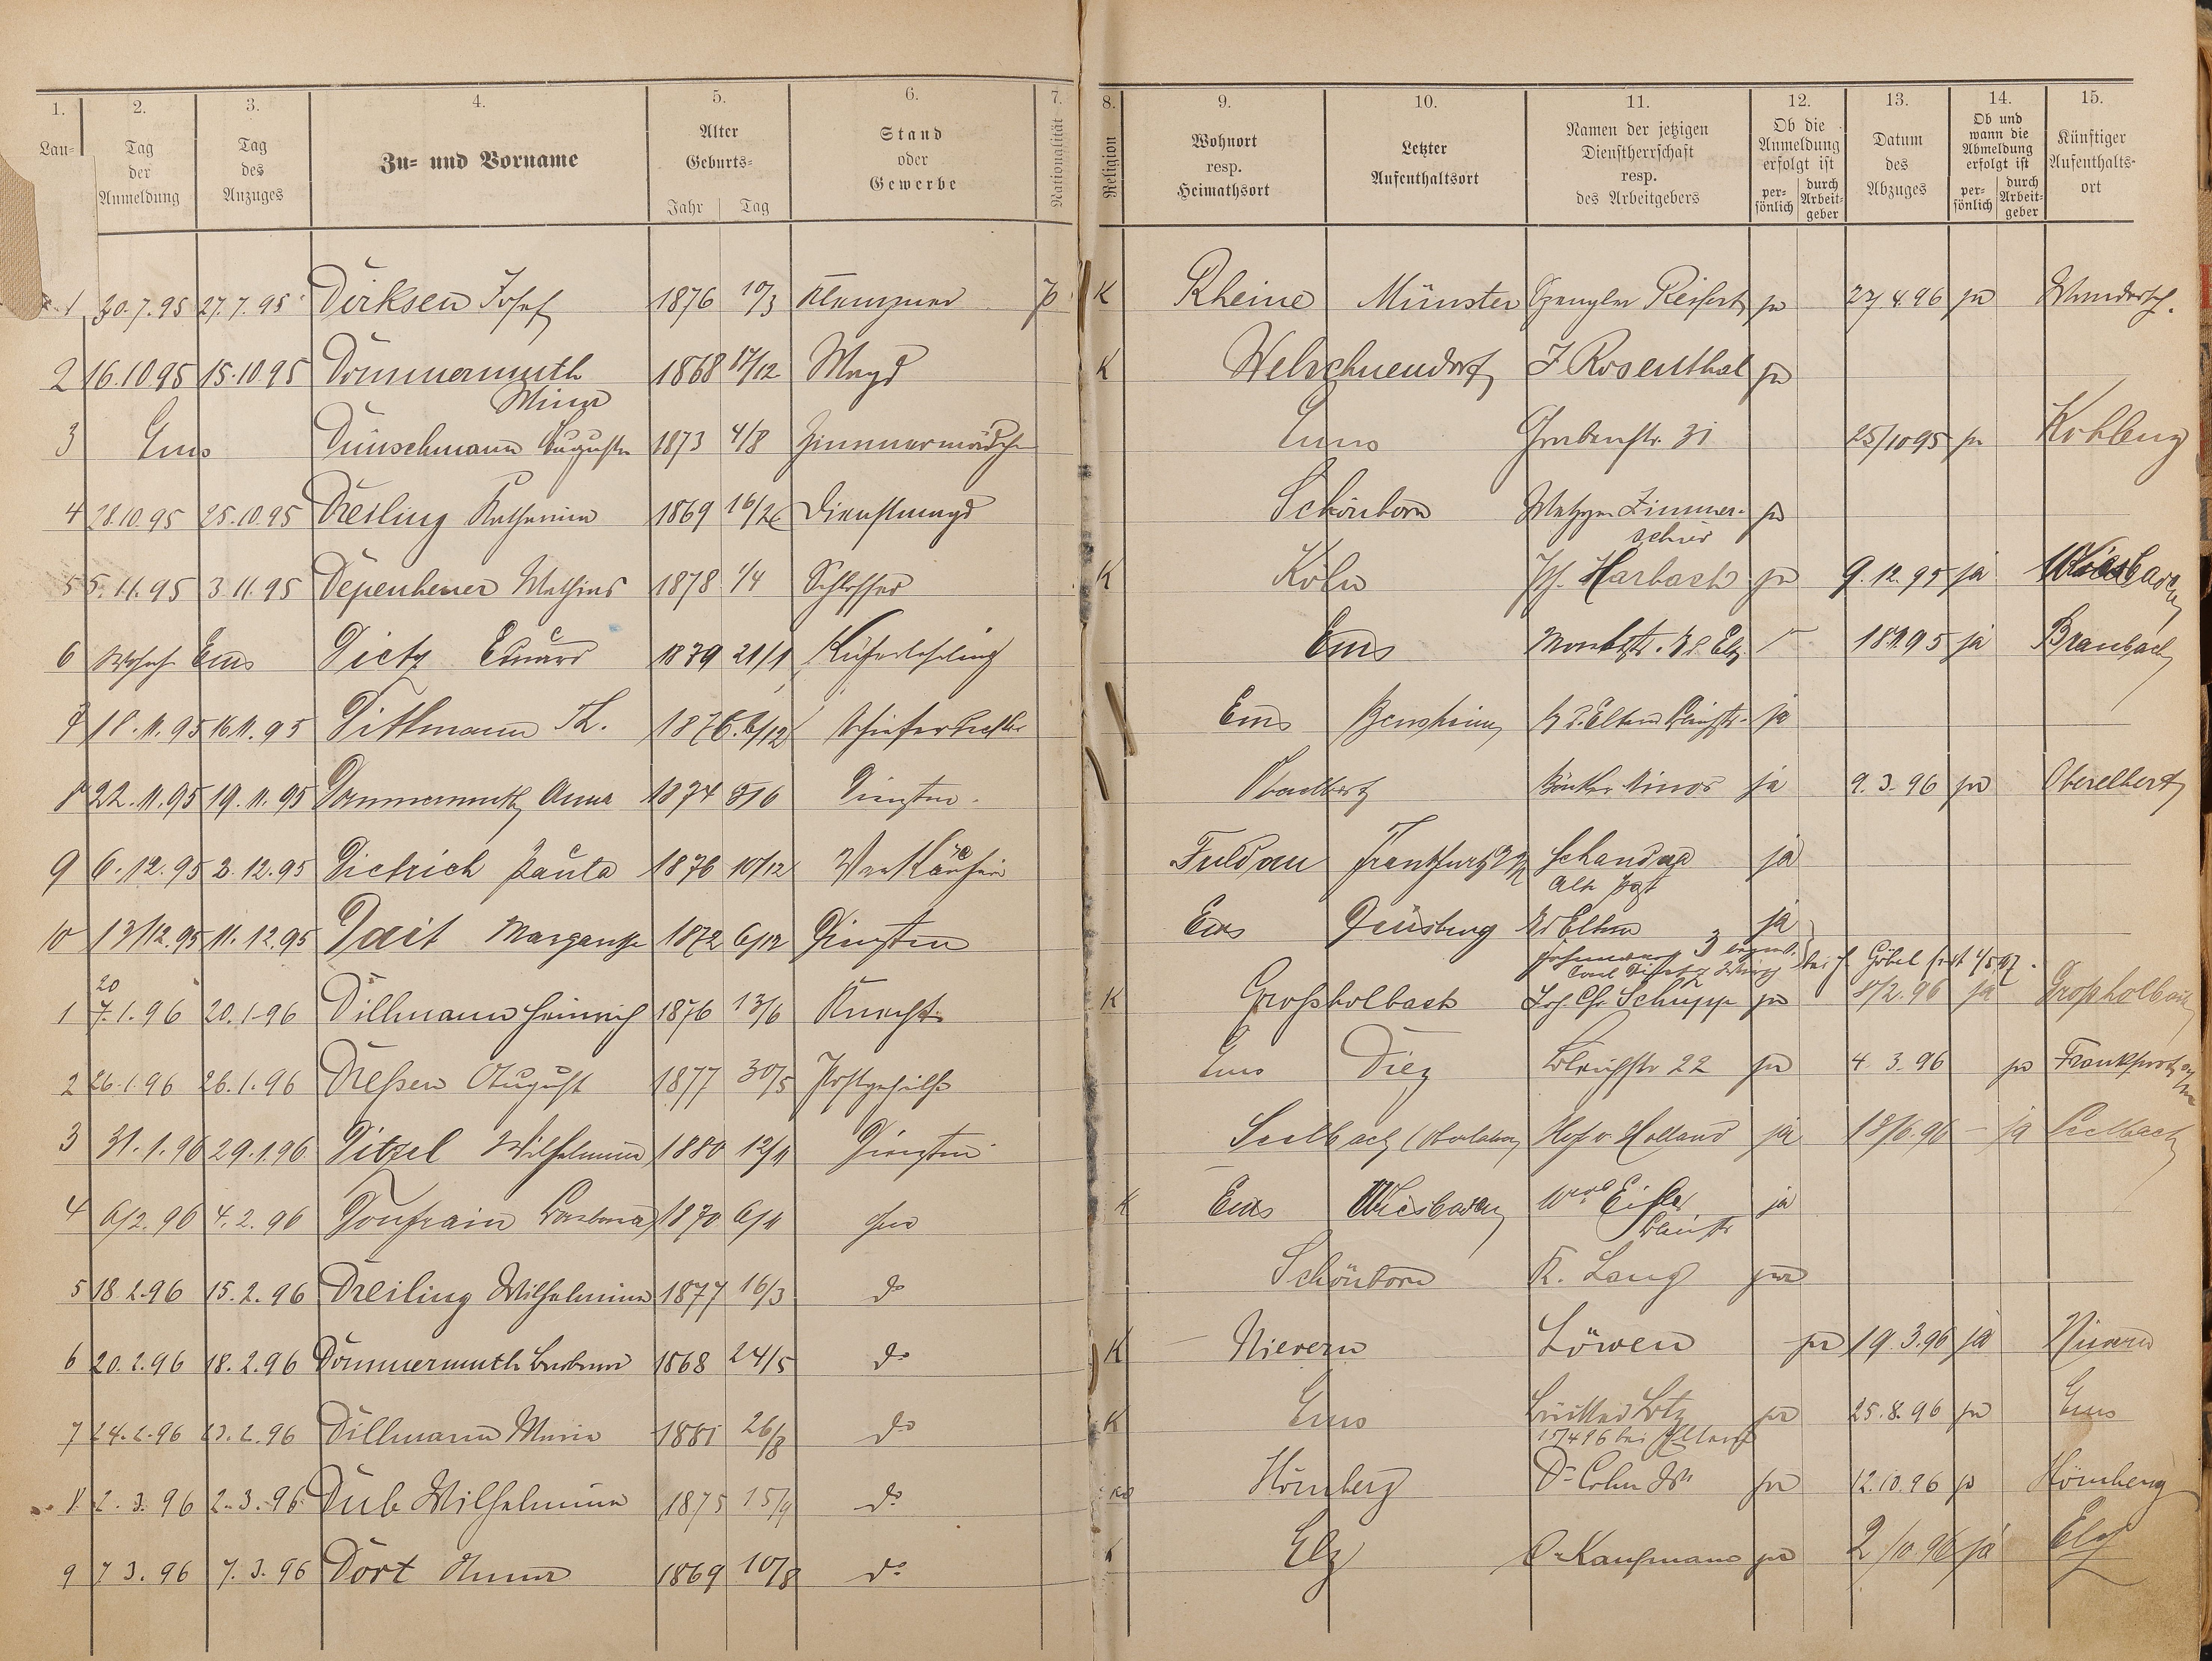 1. 2. 3. 4. 5. 6. 7. 8. 9. 10. 11. 12. 13. 14. 15.
Lau= Tag der Anmeldung Tag des Anzuges Zu= und Vorname Alter Geburts= Jahr Tag Stand oder Gewerbe Nationalität Religion Wohnort resp. Heimathsort Letzter Aufenthaltsort Namen der jetzigen Dienstherrschaft resp. des Arbeitgebers Ob die Anmeldung erfolgt ist per= sönlich durch Arbeit= geber Datum des Abzuges Ob und wann die Abmeldung erfolgt ist per= sönlich durch Arbeit= geber Künftiger Aufenthalts= ort
1 30.7.95 27.7.95 Dirksen Josef 1876 10/3 Klempner P K Rheine Münster Spengler Reifert ja 27.4.96 ja Wandersch.
2 16.10.95 15.10.95 Dommermuth 1868 17/12 Magd K Welschneudorf J Rosenthal ja
Mina
3 Ems Dünschmann Auguste 1873 4/8 Zimmermädchen Ems Grabenstr. 31 25/10 95 ja Koblenz
4 28.10.95 25.10.95 Dreiling Katharina 1869 16/26 Dienstmagd Schönborn Metzger Zimmer- ja
schied
5 5.11.95 3.11.95 Depenheuer Mathias 1878 1/4 Schlosser K Köln Jos. Harbach ja 9.12.95 ja Wiesbaden
6 Ems Dietz Eduard 1879 21/1 Küferlehrling Ems 18.11.95 ja Braubach
7 18.11.95 16.11.95 Dittmann Th. 1876 6/12 Ems Bensheim ja
8 22.11.95 19.11.95 Dommermuth Anna 1874 Dienstm. Oberelbert ja 9.3.96 ja Oberelbert
9 6.12.95 3.12.95 Dietrich Paula 1876 10/12 Verkäuferin Fuldau Frankfurt a/M Schandua ja
Alte Post
10 13/12.95 11.12.95 Dait Margarethe 1872 6/12 Dienstm Ems Duisburg ja
1 20 7.1.96 20.1.96 Dillmann Heinrich 1876 13/6 Knecht K Großholbach Schupp ja 8/2.96 ja Großholbach
2 26.1.96 26.1.96 Dreßen August 1877 30/5 Postgehilfe Ems Diez Bleichstr 22 ja 4.3.96 ja Frankfurt a/M
3 31.1.96 29.1.96 Ditzel Wilhelmine 1880 12/11 Dienstm Seelbach Hof v. Holland ja 18/6.96 - ja Seelbach
4 6/2.96 4.2.96 Donfrain Barbara 1870 6/11 K Ems Wiesbaden ja
5 18.2.96 15.2.96 Dreiling Wilhelmine 1877 16/3 do Schönborn K. Lang ja
6 20.2.96 18.2.96 Dommermuth Barbara 1868 24/5 do K Nievern Löwen ja 19.3.96 ja Nievern
7 24.2.96 23.2.96 Dillmann Maria 1881 26/8 do K Ems ja 25.8.96 ja Ems
15/4 96 bei
8 2.3.96 2.3.96 Dub Wilhelmine 1875 15/9 do Hömberg Dr Cohn ja 12.10.96 ja Hömberg
9 7.3.96 7.3.96 Dort Anna 1869 10/8 do K Elz Kaufmann ja 2/10 96 ja Elz